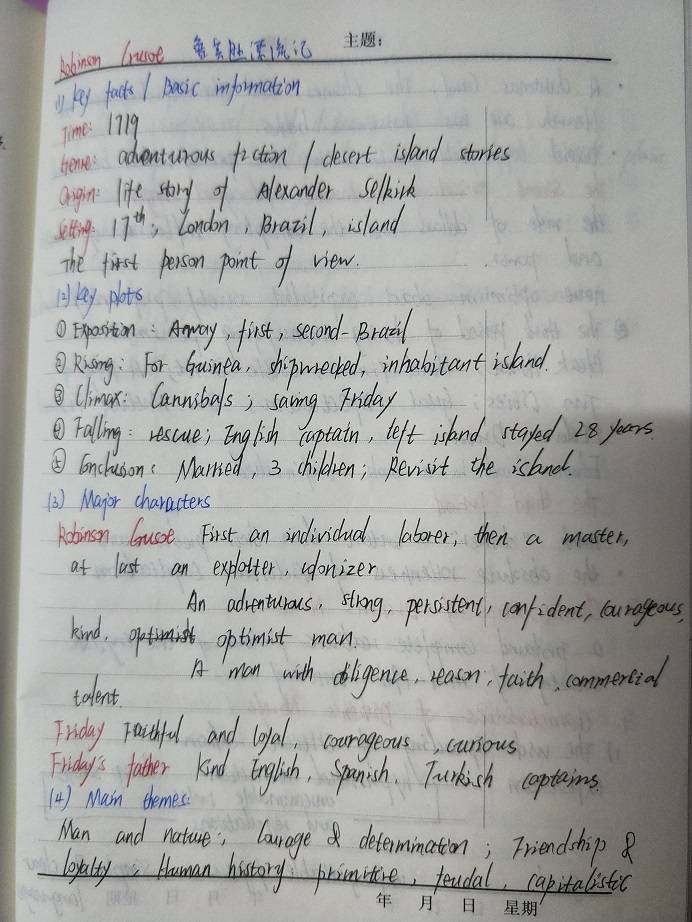 主题:
Robinson Crusoe 鲁宾逊漂流记
(1) Key facts / Basic information
Time: 1719
Genre: adventurous fiction / desert island stories
Origin: life story of Alexander Selkirk
Setting: 17th, London, Brazil, island
The first person point of view.
(2) Key plots
① Exposition: Away, first, second-Brazil
② Rising: For Guinea, shipwrecked, inhabitant island.
③ Climax: Cannibals; saving Friday
④ Falling: rescue; English captain, left island stayed 28 years.
⑤ Conclusion: Married, 3 children; Revisit the island.
(3) Major characters
Robinson Crusoe First an individual laborer, then a master,
at last an exploiter, colonizer
An adventurous, strong, persistent, confident, courageous,
kind, optimist man.
A man with diligence, reason, faith, commercial
talent.
Friday Faithful and loyal, courageous, curious
Friday's father Kind, English, Spanish, Turkish captains.
(4) Main themes:
Man and nature; Courage & determination; Friendship &
loyalty; Human history primitive, feudal, capitalistic
年 月 日 星期